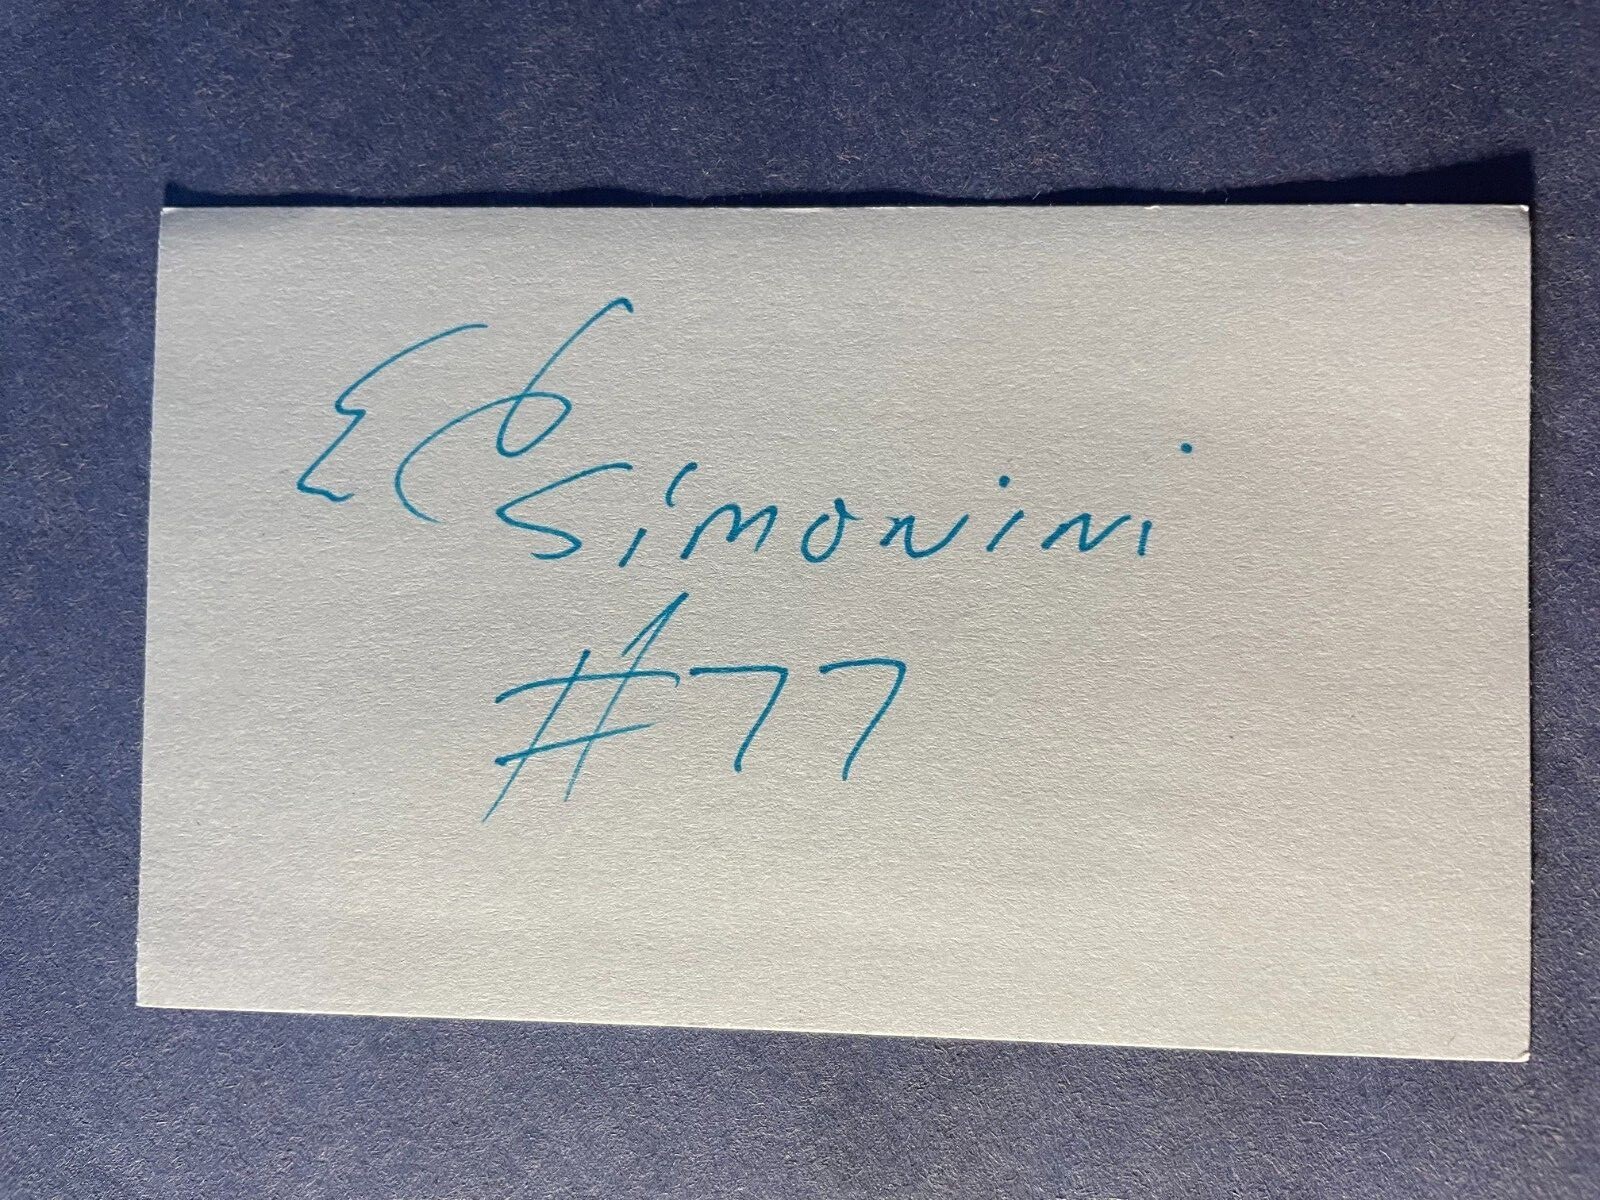 Ed
Simonini
#77